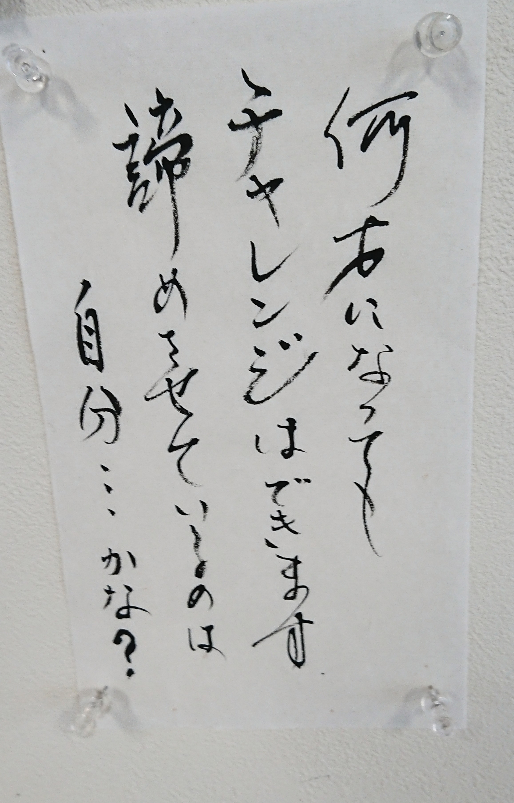 何才になっても
チャレンジはできます
諦めさせているのは
自分…かな?